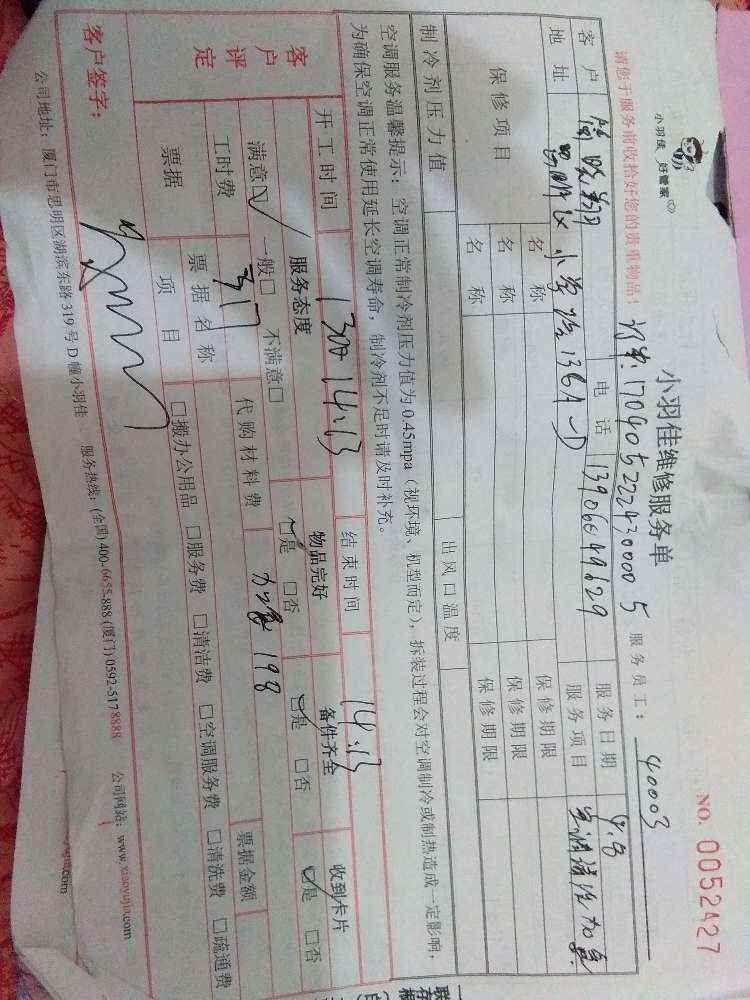 小羽佳 好管家
小羽佳维修服务单
NO. 0052427
请您于服务前收拾好您的贵重物品!
订单:17090522742000005
服务员工: 40003
客户
电话 13906049629
服务日期 4.8
地址 思明区 小学路136A-D
服务项目 空调清洗加氟
保修项目 名称 保修期限
名称 保修期限
名称 保修期限
制冷剂压力值 出风口温度
空调服务温馨提示:空调正常制冷剂压力值为0.45mpa(视环境、机型而定),拆装过程会对空调制冷或制热造成一定影响,
为确保空调正常使用延长空调寿命,制冷剂不足时请及时补充。
开工时间 1300 14:13 结束时间 14:13
客户评定 服务态度 物品完好 备件齐全 收到卡片
满意☑ 一般□ 不满意□ ☑是 □否 ☑是 □否 ☑是 □否
工时费 317 代购材料费 加氟198
票据 票据名称 票据金额
项目 □搬办公用品 □服务费 □清洁费 □空调服务费 □清洗费 □疏通费
客户签字:
公司地址:厦门市思明区湖滨东路319号D幢小羽佳 服务热线:(全国)400-6655-888 (厦门)0592-5178888 公司网站:www.xiaoyujia.com